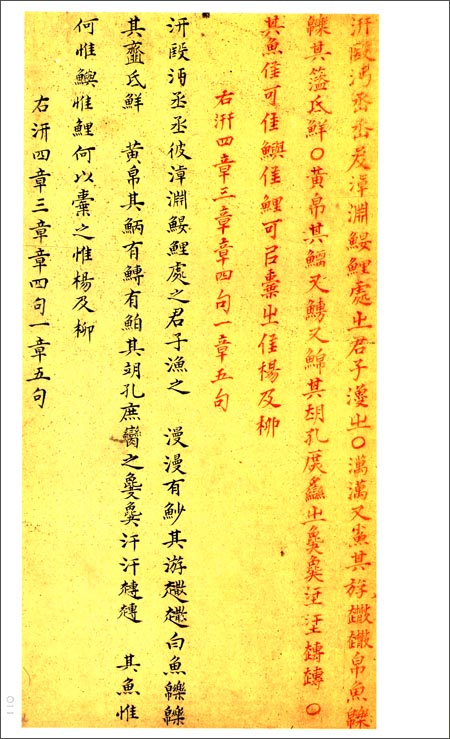 汧殹沔丞丞皮淖淵鰋鯉處㞢君子漁㞢○澫澫又其斿帛魚
其氐鮮○黃帛其又鱄又其胡孔庶㞢○
其魚隹可隹鱮隹鯉可㠯橐㞢隹楊及柳
右汧四章三章章四句一章五句
汧殹沔丞丞彼淖淵鰋鯉處之君子漁之 漫漫有魦其游白魚
其氐鮮 黃帛其有鱄有鮊其胡孔庶臠之汗汗 其魚惟
何惟鱮惟鯉何以橐之惟楊及柳
右汧四章三章章四句一章五句
011